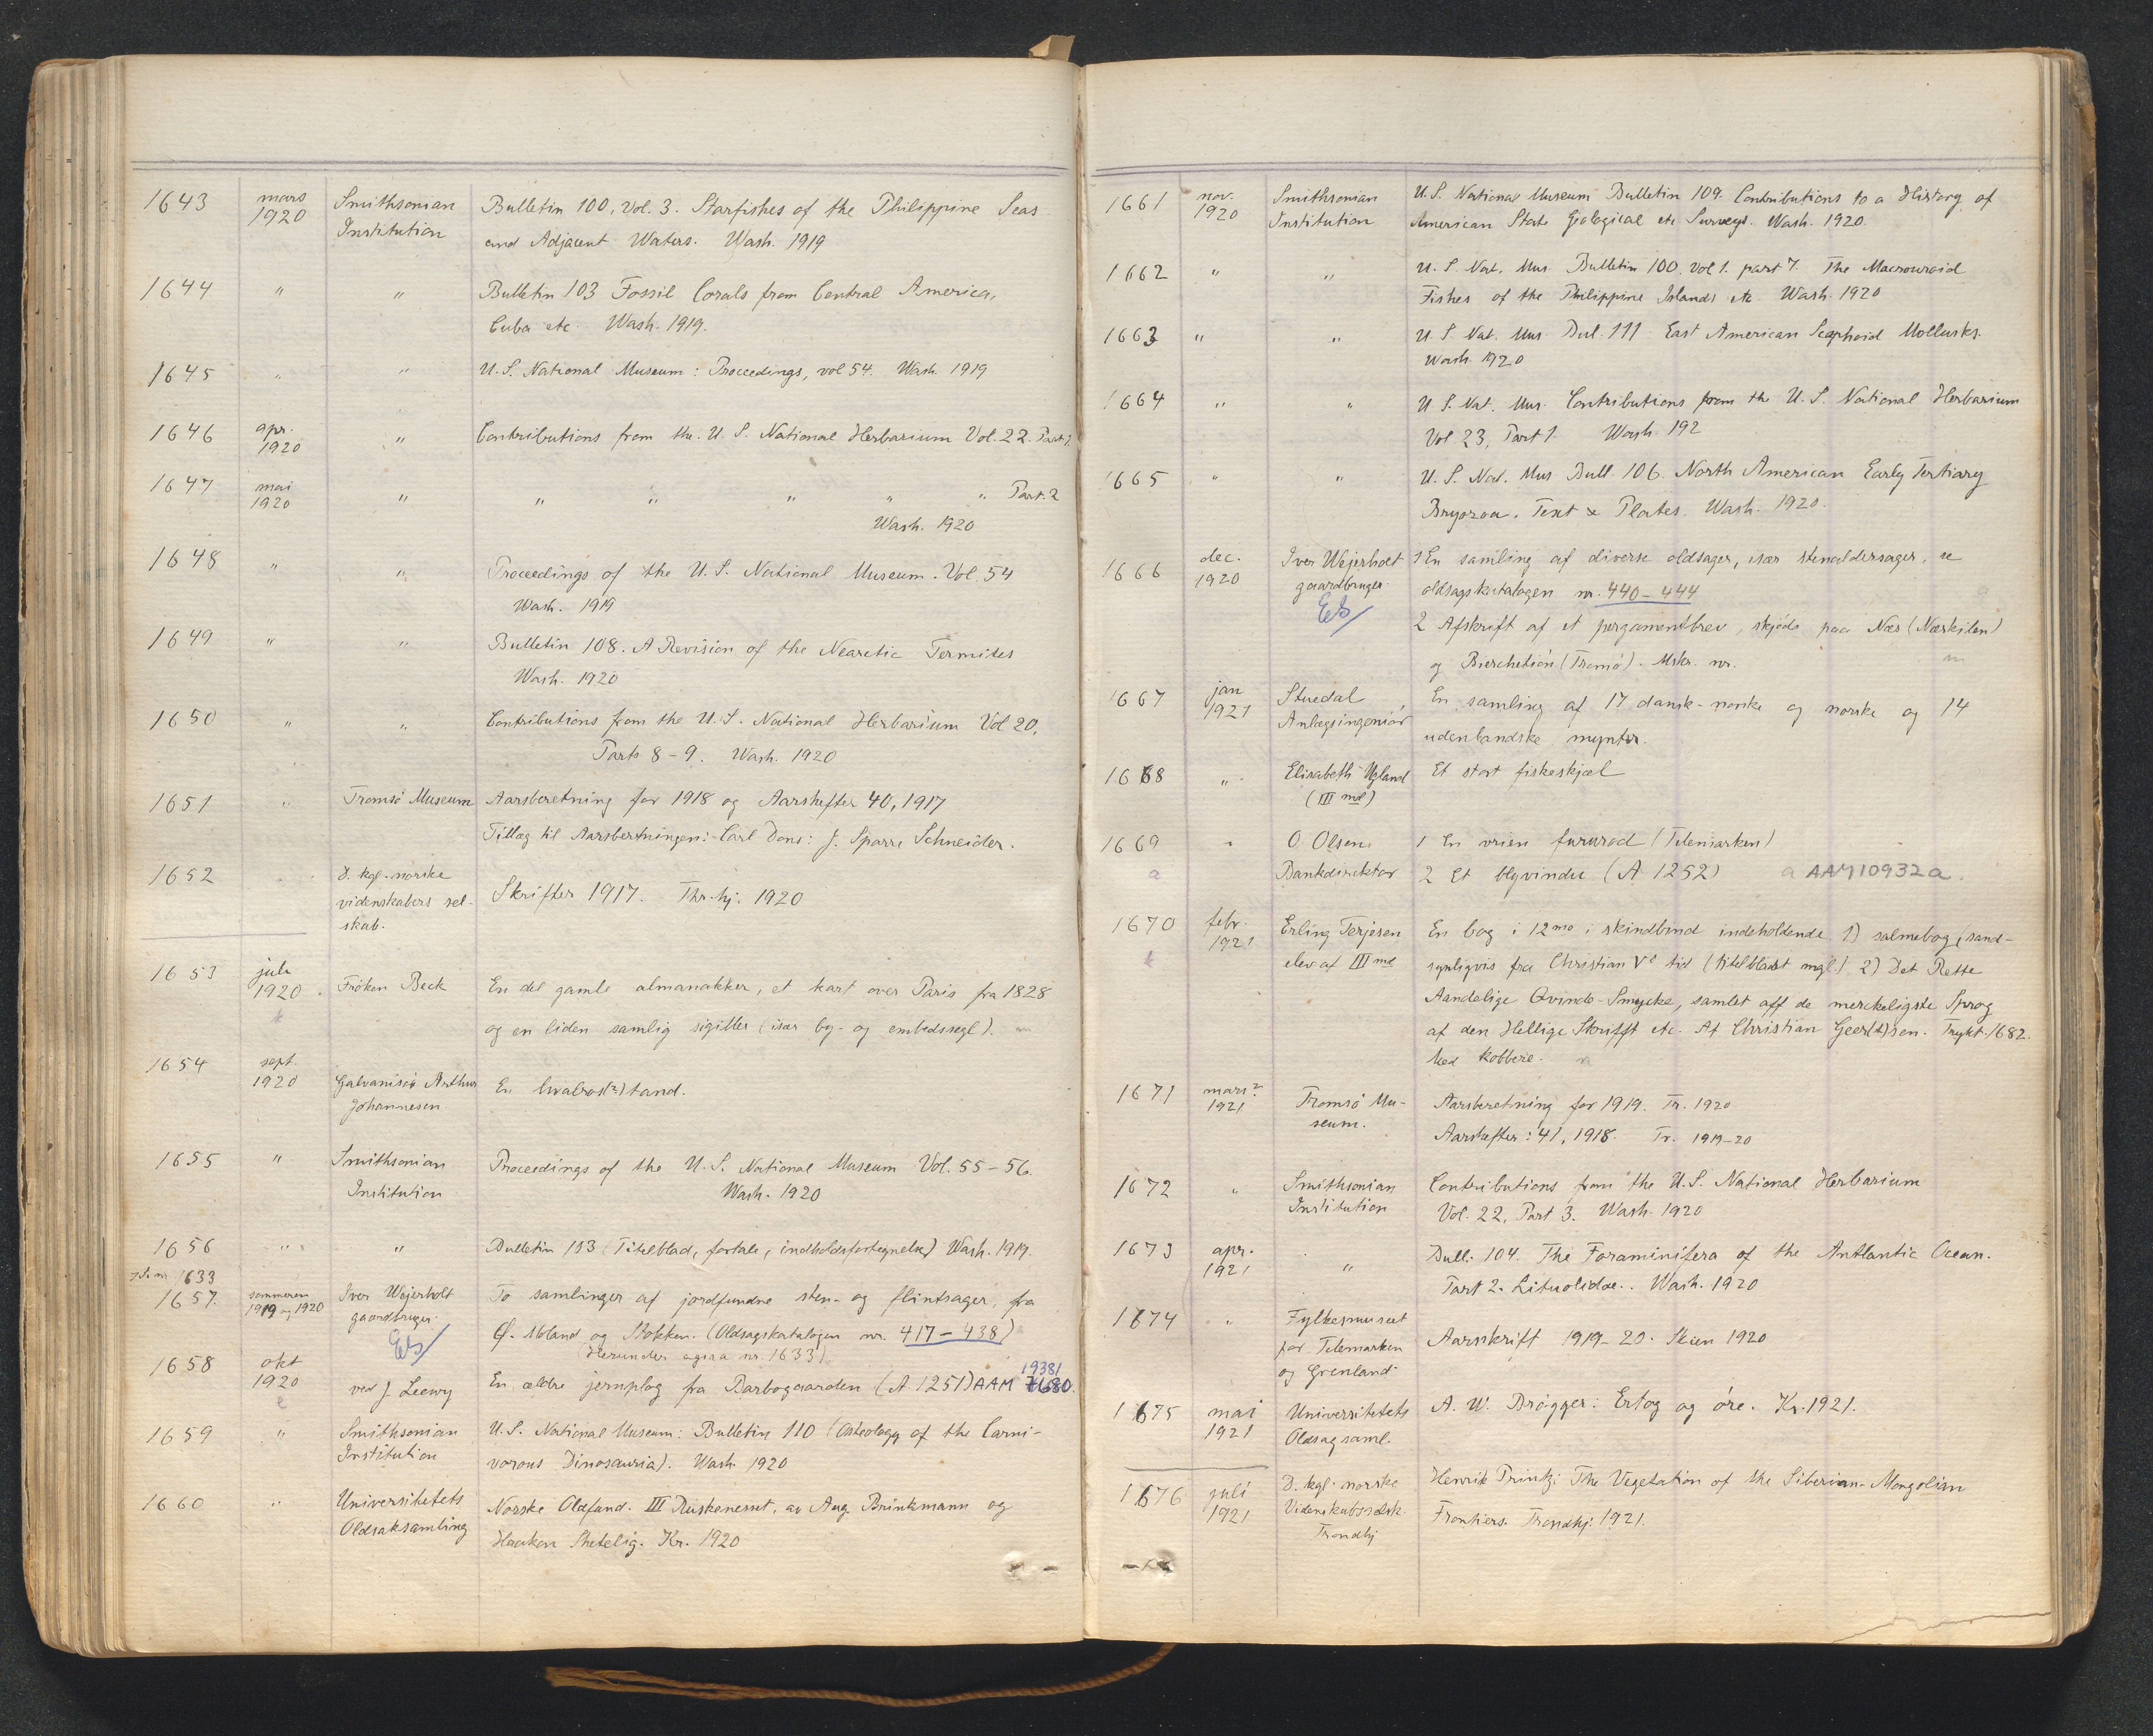 1643 mars 1920 Smithsonian Institution Bulletin 100, Vol. 3. Starfishes of the Philippine Seas
and Adjacent Waters. Wash. 1919
1644 " " Bulletin 103 Fossil Corals from Central America,
Cuba etc. Wash. 1919.
1645 " " U.S. National Museum: Proceedings, vol 54. Wash. 1919
1646 apr. 1920 " Contributions from the U.S. National Herbarium Vol. 22. Part 1.
1647 mai 1920 " " " " " " Part. 2
Wash. 1920
1648 " " Proceedings of the U.S. National Museum. Vol. 54
Wash. 1919
1649 " " Bulletin 108. A Revision of the Nearctic Termites
Wash. 1920
1650 " " Contributions from the U.S. National Herbarium Vol 20,
Parts 8-9. Wash. 1920
1651 " Tromsö Museum Aarsberetning for 1918 og Aarshefter 40, 1917
Tillæg til Aarsbertningen: Carl Dons: J. Sparre Schneider.
1652 " D. kgl. norske
videnskabers sel-
skab.
Skrifter 1917. Thr.hj. 1920
1653 juli 1920. Fröken Beck En del gamle almanakker, et kart over Paris fra 1828
k og en liden samlig sigiller (især by- og embedssegl).
1654 sept. 1920 Galvanisör Arthur
Johannesen
En hvalros(?)tand.
1655 " Smithsonian
Institution
Proceedings of the U.S. National Museum Vol. 55-56.
Wash. 1920
1656 " " Bulletin 103 (Titelblad, fortale, indholdsfortegnelse) Wash. 1919.
1633
1657. sommeren 1919 og 1920 Iver Wejerholt
gaardbruger.
To samlinger af jordfundne sten- og flintsager, fra
Ø. Moland og Stokken. (Oldsagskatalogen nr. 417-438)
(Herunder ogsaa nr. 1633)
1658 okt 1920 ved J. Leewy En ældre jernplog fra Barbogaarden (A. 1251) AAM 7680. 19381
1659 " Smithsonian
Institution
U.S. National Museum: Bulletin 110 (Osteology of the Carni-
vorous Dinosauria). Wash. 1920
1660 " Universitetets
Oldsaksamling
Norske Oldfund. III Ruskenesset, av Aug. Brinkmann og
Haakon Shetelig. Kr. 1920
1661 nov. 1920 Smithsonian
Institution
U.S. National Museum Bulletin 109. Contributions to a History of
American State Geological etc Surveys. Wash. 1920.
1662 " " U.S. Nat. Mus. Bulletin 100, vol 1. part 7. The Macrouroid
Fishes of the Philippine Islands etc. Wash. 1920
1663 " " U.S. Nat. Mus. Bul. 111 East American Scaphoid Mollusks.
Wash. 1920
1664 " " U.S. Nat. Mus. Contributions from the U.S. National Herbarium
Vol. 23, Part 1. Wash. 192
1665 " " U.S. Nat. Mus Bull. 106. North American Early Tertiary
Bryozoa. Text & Plates. Wash. 1920.
1666 dec. 1920 Iver Wejerholt
gaardbruger.
1 En samling af diverse oldsager, især stenaldersager, se
oldsagskatalogen nr. 440-444
2 Afskrift af et pergamentbrev, skjøde paa Næs (Næskilen)
og Bierchetión (Tromö). Mskr. nr.
1667 jan 1921 Stuedal
Anlægsingeniör
En samling af 17 dansk-norske og norske og 14
udenlandske mynter.
1668 " Elisabeth Ugland
(III md)
Et stort fiskeskjæl
1669 " O. Olsen
Bankdirektör
1 En vrien fururod (Telemarken)
a 2 Et blyvindu (A 1252) a AAM 10932a.
1670 febr. 1921 Erling Terjesen
elev af III md
En bog i 12mo i skindbind indeholdende 1) salmebog, (sand-
synligvis fra Christian Ve tid (titelbladet mgl.) 2) Det Rette
Aandelige Qvinde-Smycke, samlet aff de merckeligste Sprog
af den Hellige Skrifft etc. Af Christian Geer(t)sen. Trykt. 1682.
Med kobbere.
1671 mars? 1921 Tromsö Mu-
seum.
Aarsberetning for 1919. Tr. 1920
Aarshefter: 41, 1918. Tr. 1919-20
1672 " Smithsonian
Institution
Contributions from the U.S. National Herbarium
Vol. 22, Part 3. Wash. 1920
1673 apr. 1921 " Bull. 104. The Foraminifera of the Antlantic Ocean.
Part 2. Lituolidae. Wash. 1920
1674 " Fylkesmuseet
for Telemarken
og Grenland
Aarsskrift 1919-20. Skien 1920
1675 mai 1921 Universitetets
Oldsagsaml.
A. W. Brögger: Ertog og öre. Kr. 1921.
1676 juli 1921 D. kgl. norske
Videnskabsselsk.
Trondhj
Henrik Printz: The Vegetation of the Siberian-Mongolian
Frontiers. Trondhj. 1921.